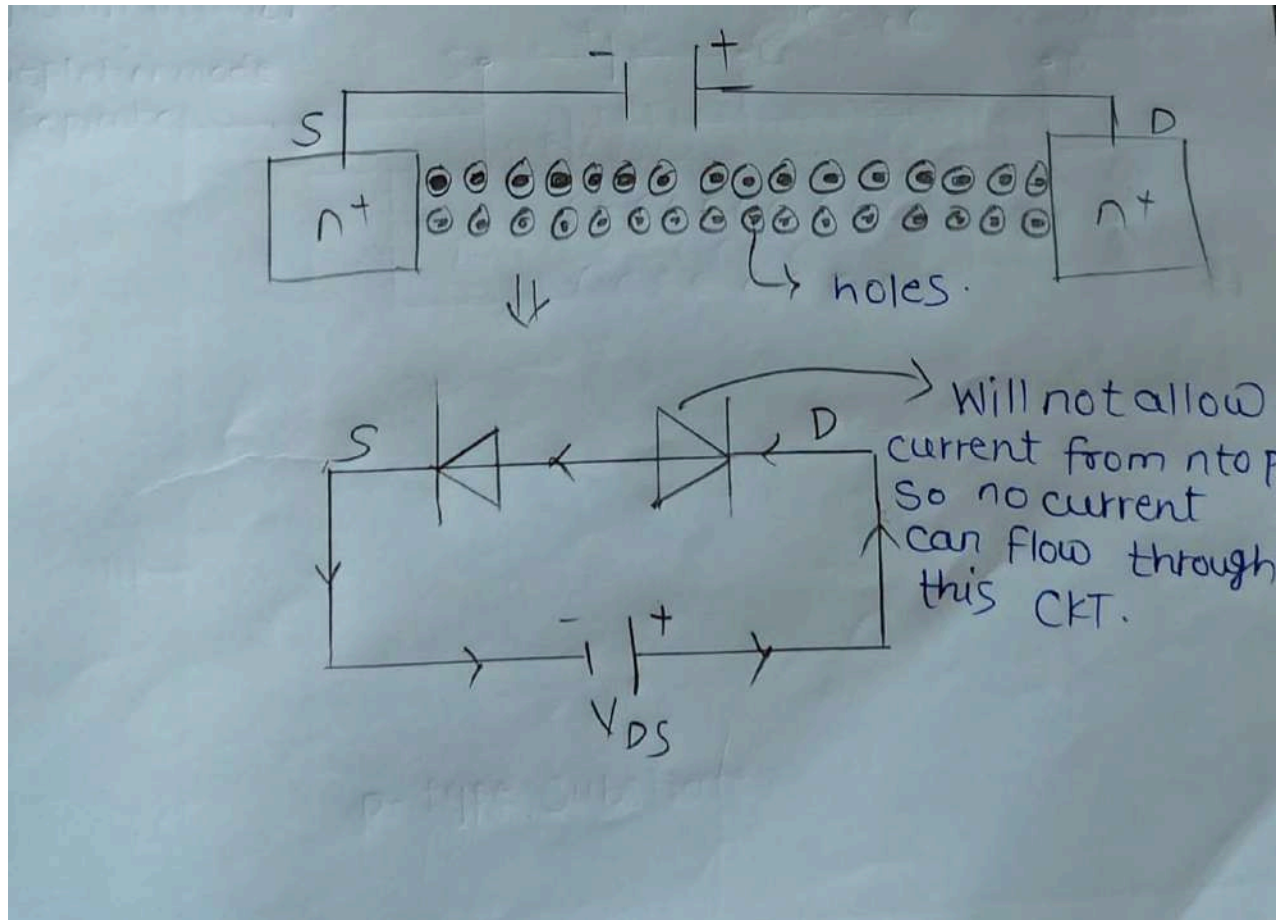 - +
S D
n+ n+
holes.
S D
Will not allow
current from n to p
So no current
can flow through
this CKT.
- +
VDS
p-type Sub